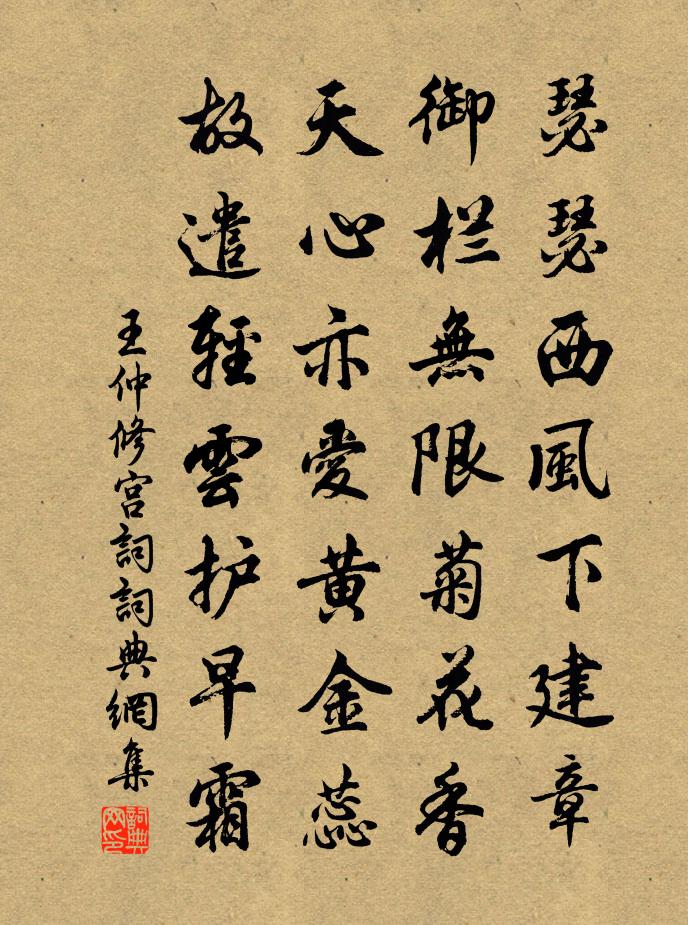 瑟瑟西風下建章
御栏無限菊花香
天心亦愛黄金蕊
故遣輕雲护早霜
王仲修宫詞詞典網集
詞典网印